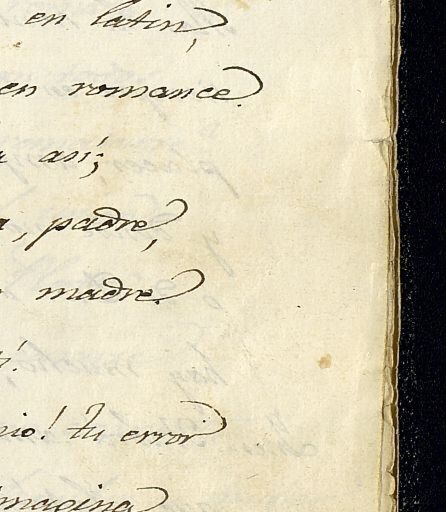 en latin,
en romance.
así;
padre,
madre.
! tu error
imagina